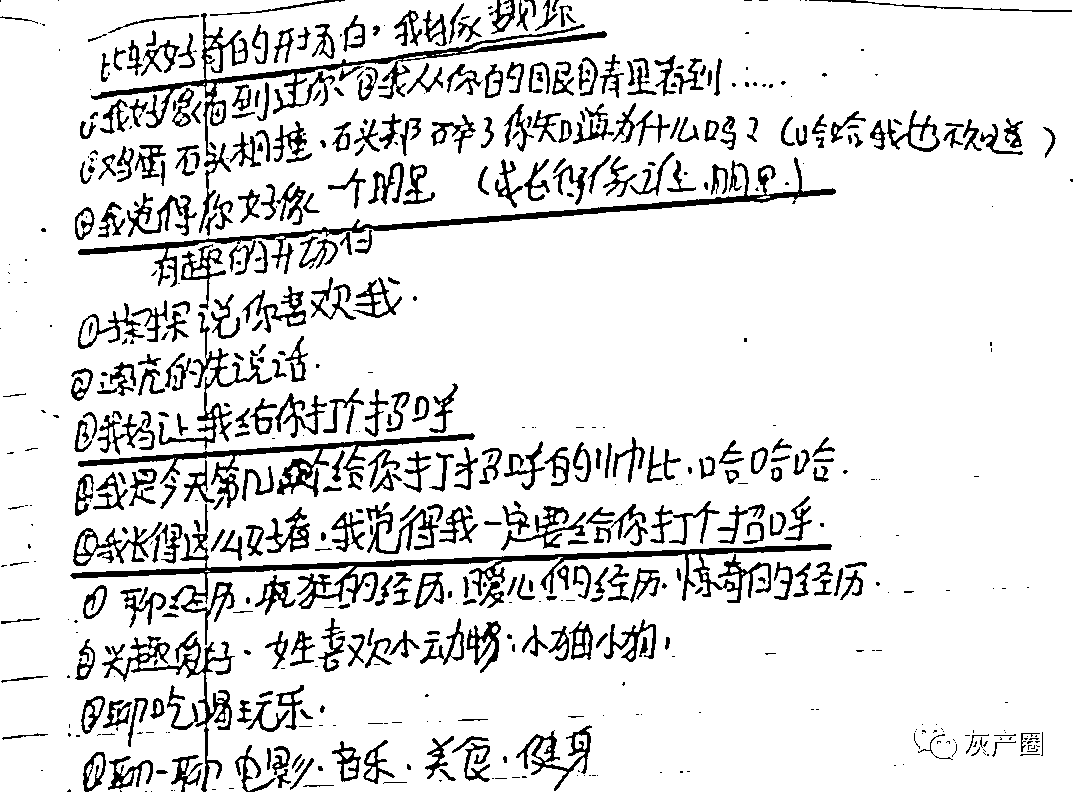 比较好奇的开场白，我好像
①我好像看到过你、①我从你的眼睛里看到……
②鸡蛋石头相撞、石头都碎了你知道为什么吗？（哈哈我也不知道）
③我觉得你好像一个明星（或长得像谁、明星）
有趣的开场白
①探探说你喜欢我.
②漂亮的先说话.
③我妈让我给你打个招呼
④我是今天第几个给你打招呼的，哈哈哈.
⑤我长得这么好看，我觉得我一定要给你打个招呼.
① 聊经历.疯狂的经历.暖心的经历.惊奇的经历.
②兴趣爱好、女生喜欢小动物：小猫小狗，
③聊吃喝玩乐.
④聊一聊 电影.音乐.美食.健身
灰产圈